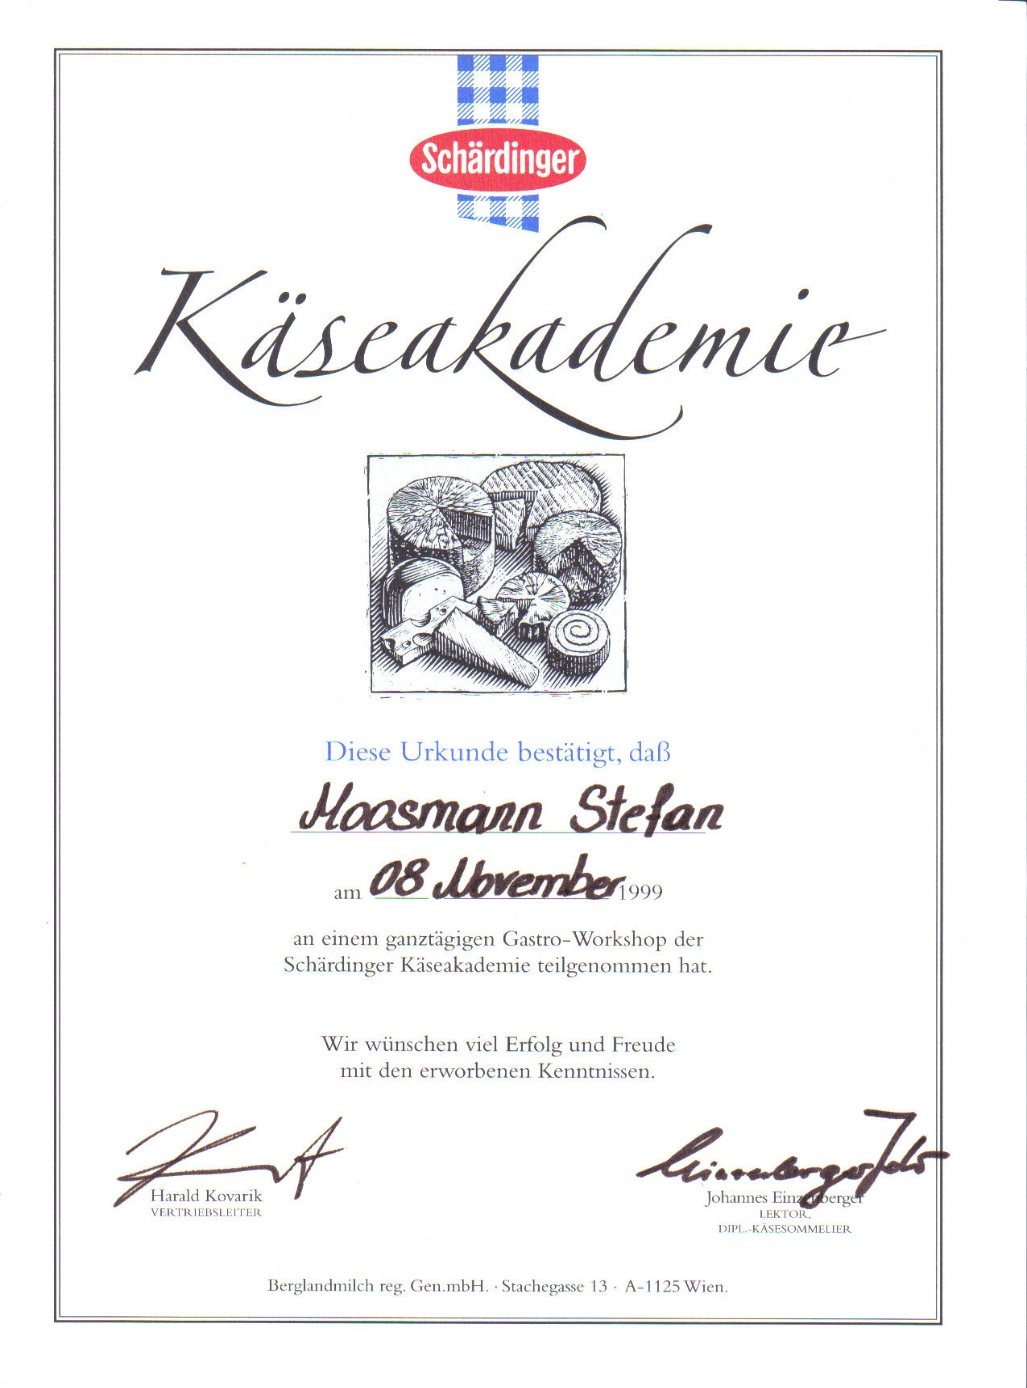 Schärdinger
Käseakademie
Diese Urkunde bestätigt, daß
Moosmann Stefan
am 08 November 1999
an einem ganztägigen Gastro-Workshop der
Schärdinger Käseakademie teilgenommen hat.
Wir wünschen viel Erfolg und Freude
mit den erworbenen Kenntnissen.
Harald Kovarik
VERTRIEBSLEITER
Johannes Einzenberger
LEKTOR,
DIPL.-KÄSESOMMELIER
Berglandmilch reg. Gen.mbH. · Stachegasse 13 · A-1125 Wien.